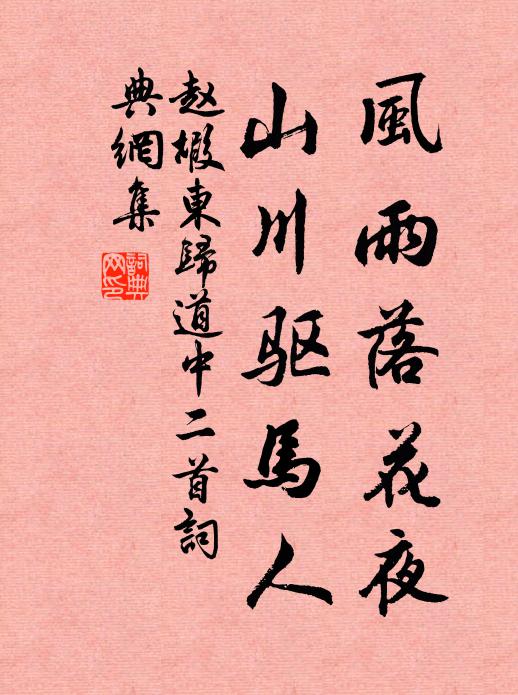 風雨落花夜
山川驱馬人
赵嘏東歸道中二首詞
典網集
詞典
网印